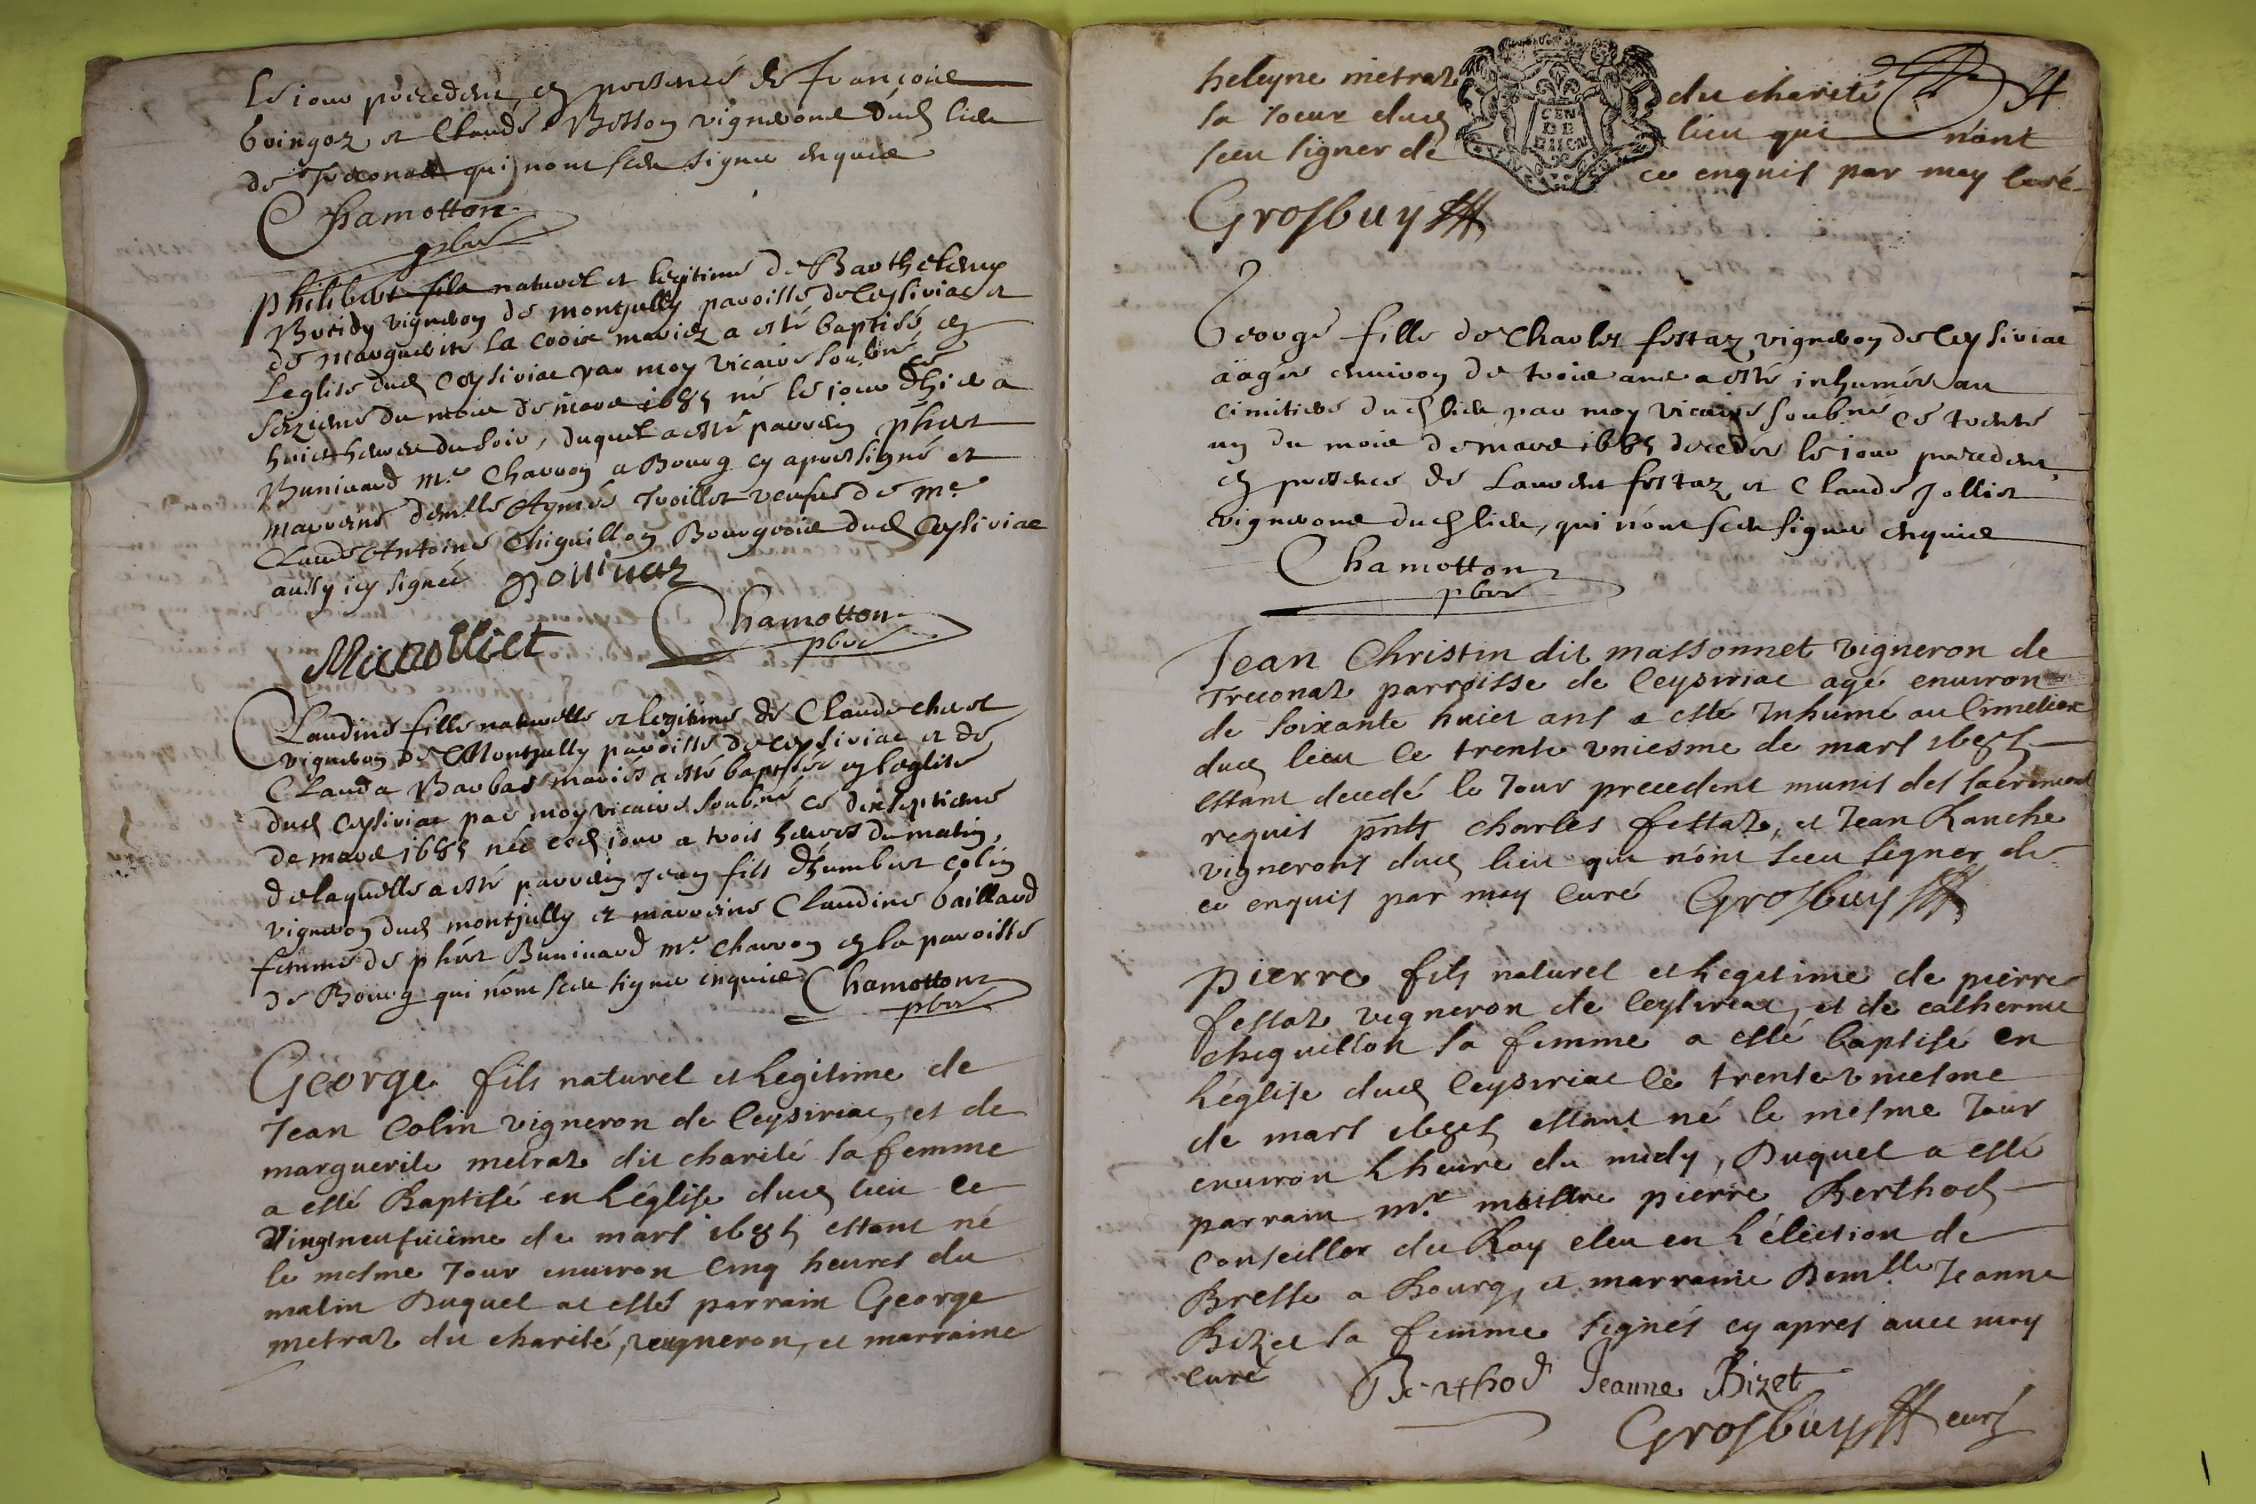 le jour precedent en presence de françois
boingoz et Claude Besson vignerons dud lieu
de Treconas qui n'ont sceu signer enquis
Chamotton
pbre
Philibert fils naturel et legitime de Barthelemy
Buridy vigneron de montjully paroisse de Ceysiriac et
de marguerite la croix mariez a esté baptisé en
Leglise dud Ceysiriac par moy vicaire soubné ce
seziesme du mois de mars 1685 né le jour d'hier a
huict heures du soir, duquel a esté parrein phert
Buniuard me Charron a Bourg cy apres signé et
marreine demlle Aymée Troillet veufue de me
Claude Antoine Chiquillon Bourgeois dud Ceysiriac
aussy icy signée
Chamotton
pbre
Claudine fille naturelle et legitime de Claude
vigneron de Montjully paroisse de ceysiriac et de
Clauda Barbas mariés a esté baptisée en leglise
dud Ceysiriac par moy vicaire soubné ce dixseptiesme
de mars 1685 née ced jour a trois heures du matin,
de laquelle a esté parrein Jean fils d'humbert colin
vigneron dud montjully et marreine Claudine baillard
femme de phert Buniuard me charron en la paroisse
de Bourg qui n'ont sceu signer enquis Chamotton
pbre
George fils naturel et Legitime de
Jean Colin vigneron de Ceysiriac, et de
marguerite metraz dit charité sa femme
a esté Baptisé en Léglise dud lieu le
Vingtneufuieme de mars 1685 estant né
le mesme Jour enuiron Cinq heures du
matin Duquel at esté parrain George
metraz dit charité, vigneron, et marraine
heleyne metraz dit charité
sa soeur dud lieu qui n'ont
sceu signer de ce enquis par moy Curé
Grosbuy
George fille de Charles festaz vigneron de Ceysiriac
aagée enuiron de trois ans a esté inhumée au
cimitiere dud lieu par moy vicaire soubné ce trente
un du mois de mars 1685 decedée le jour precedent,
en presence de Laurent festaz et Claude Jolliet
vignerons dud lieu, qui n'ont sceu signer enquis
Chamotton
pbre
Jean Christin dit massonnet vigneron de
Treconaz parroisse de Ceysiriac agé enuiron
de soixante huict ans a esté Inhumé au Cimetiere
dud lieu le trente vniesme de mars 1685
estant decedé le Jour precedent munis des sacrements
requis pnts Charles festaz, et Jean Ranche
vignerons dud lieu qui n'ont sceu signer de
ce enquis par moy Curé Grosbuy
Pierre fils naturel et Legitime de pierre
festaz vigneron de Ceysiriac, et de catherine
chiquillon sa femme a esté baptisé en
Léglise dud Ceysiriac le trente vniesme
de mars 1685 estant né le mesme Jour
enuiron Lheure du midy, Duquel a esté
parrain mr maistre pierre Berthod
Conseiller du Roy eleu en Léléction de
Bresse a Bourg, et marraine Demlle Jeanne
Bizet sa femme signés cy apres auec moy
Curé
Berthod Jeanne Bizet
Grosbuy curé